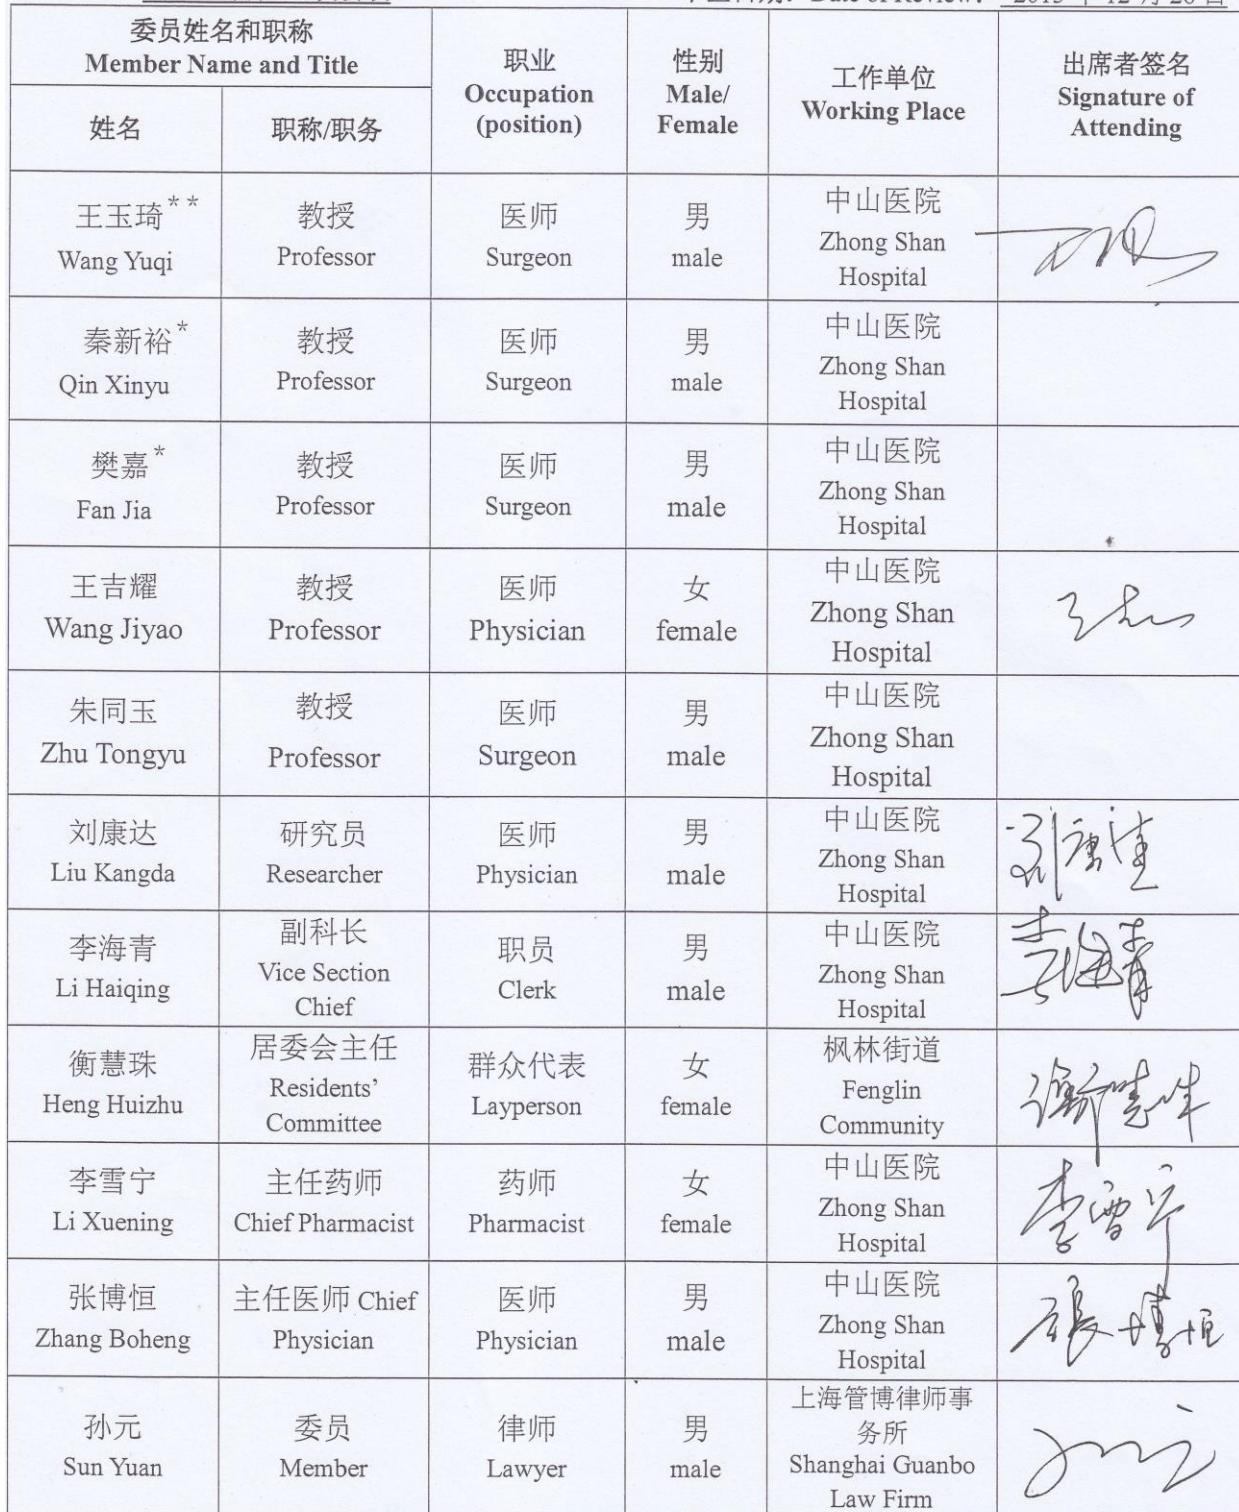 Date of Review:
委员姓名和职称
Member Name and Title
姓名
职称/职务
职业
Occupation
(position)
性别
Male/
Female
工作单位
Working Place
出席者签名
Signature of
Attending
王玉琦**
Wang Yuqi
教授
Professor
医师
Surgeon
男
male
中山医院
Zhong Shan
Hospital
秦新裕*
Qin Xinyu
教授
Professor
医师
Surgeon
男
male
中山医院
Zhong Shan
Hospital
樊嘉*
Fan Jia
教授
Professor
医师
Surgeon
男
male
中山医院
Zhong Shan
Hospital
王吉耀
Wang Jiyao
教授
Professor
医师
Physician
女
female
中山医院
Zhong Shan
Hospital
朱同玉
Zhu Tongyu
教授
Professor
医师
Surgeon
男
male
中山医院
Zhong Shan
Hospital
刘康达
Liu Kangda
研究员
Researcher
医师
Physician
男
male
中山医院
Zhong Shan
Hospital
李海青
Li Haiqing
副科长
Vice Section
Chief
职员
Clerk
男
male
中山医院
Zhong Shan
Hospital
衡慧珠
Heng Huizhu
居委会主任
Residents'
Committee
群众代表
Layperson
女
female
枫林街道
Fenglin
Community
李雪宁
Li Xuening
主任药师
Chief Pharmacist
药师
Pharmacist
女
female
中山医院
Zhong Shan
Hospital
李雪宁
张博恒
Zhang Boheng
主任医师 Chief
Physician
医师
Physician
男
male
中山医院
Zhong Shan
Hospital
張博恒
孙元
Sun Yuan
委员
Member
律师
Lawyer
男
male
上海管博律师事
务所
Shanghai Guanbo
Law Firm